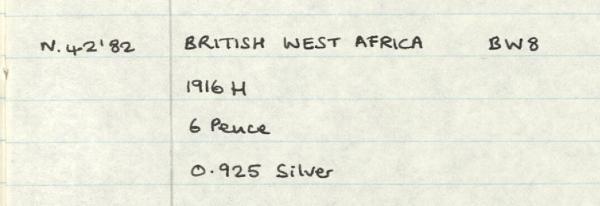 N.42'82 BRITISH WEST AFRICA BW8
1916 H
6 Pence
0.925 Silver